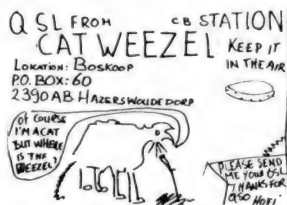 QSL FROM CB STATION
CATWEEZEL
KEEP IT
IN THE AIR
LOKATION: BOSKOOP
P.O. BOX: 60
2390 AB HAZERSWOUDE DORP
OF COURSE
I'M A CAT
BUT WHERE
IS THE
WEEZEL?
PLEASE SEND
ME YOUR QSL
THANKS FOR
QSO
HOFI